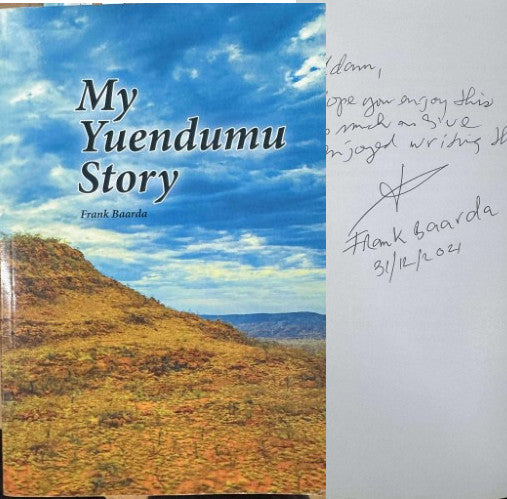 My
Yuendumu
Story
Frank Baarda
dam,
ope you enjoy this
much as I've
enjoyed writing
Frank Baarda
31/12/2021